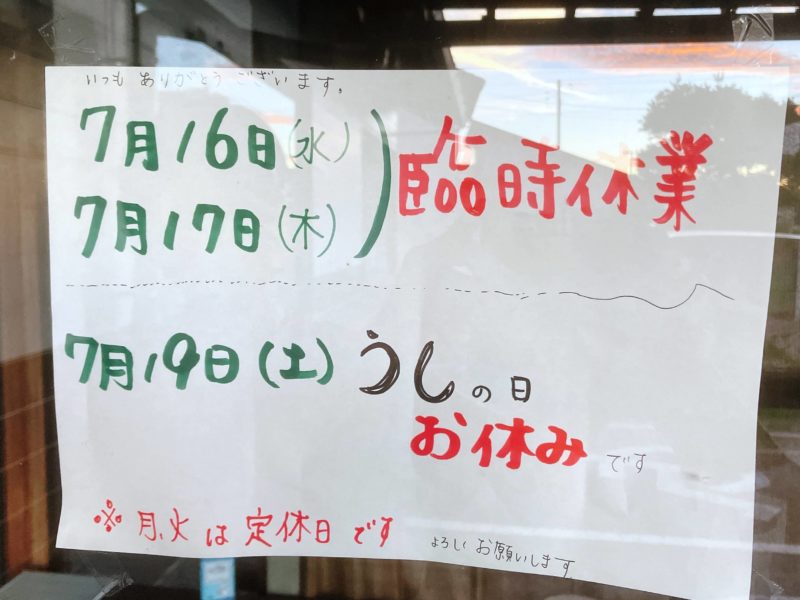 いつも ありがとう ございます。
7月16日(水)
7月17日(木)
臨時休業
7月19日(土) うしの日
お休み です
※ 月、火 は 定休日 です
よろしく お願いします